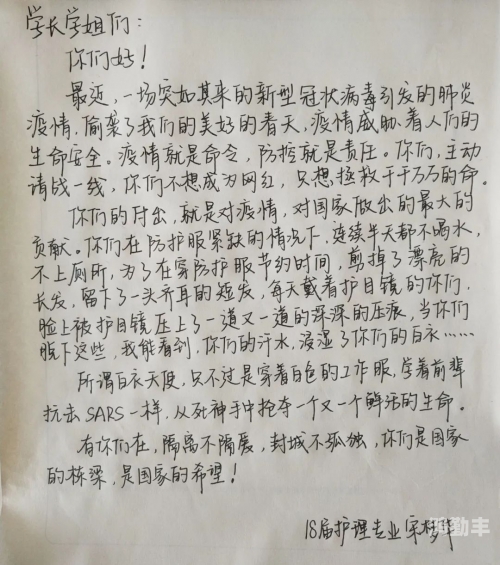 学长学姐们:
你们好!
最近,一场突如其来的新型冠状病毒引发的肺炎
疫情,偷袭了我们的美好的春天,疫情威胁着人们的
生命安全。疫情就是命令,防控就是责任。你们,主动
请战一线,你们不想成为网红,只想拯救千千万万的命。
你们的付出,就是对疫情,对国家做出的最大的
贡献。你们在防护服紧缺的情况下,连续半天都不喝水,
不上厕所,为了在穿防护服节约时间,剪掉了漂亮的
长发,留下了一头齐耳的短发,每天戴着护目镜的你们,
脸上被护目镜压上了一道又一道的深深的压痕,当你们
脱下这些,我能看到,你们的汗水,浸湿了你们的白衣……
所谓白衣天使,只不过是穿着白色的工作服,学着前辈
抗击SARS一样,从死神手中抢夺一个又一个鲜活的生命。
有你们在,隔离不隔爱,封城不孤独,你们是国家
的栋梁,是国家的希望!
18届护理专业 宋